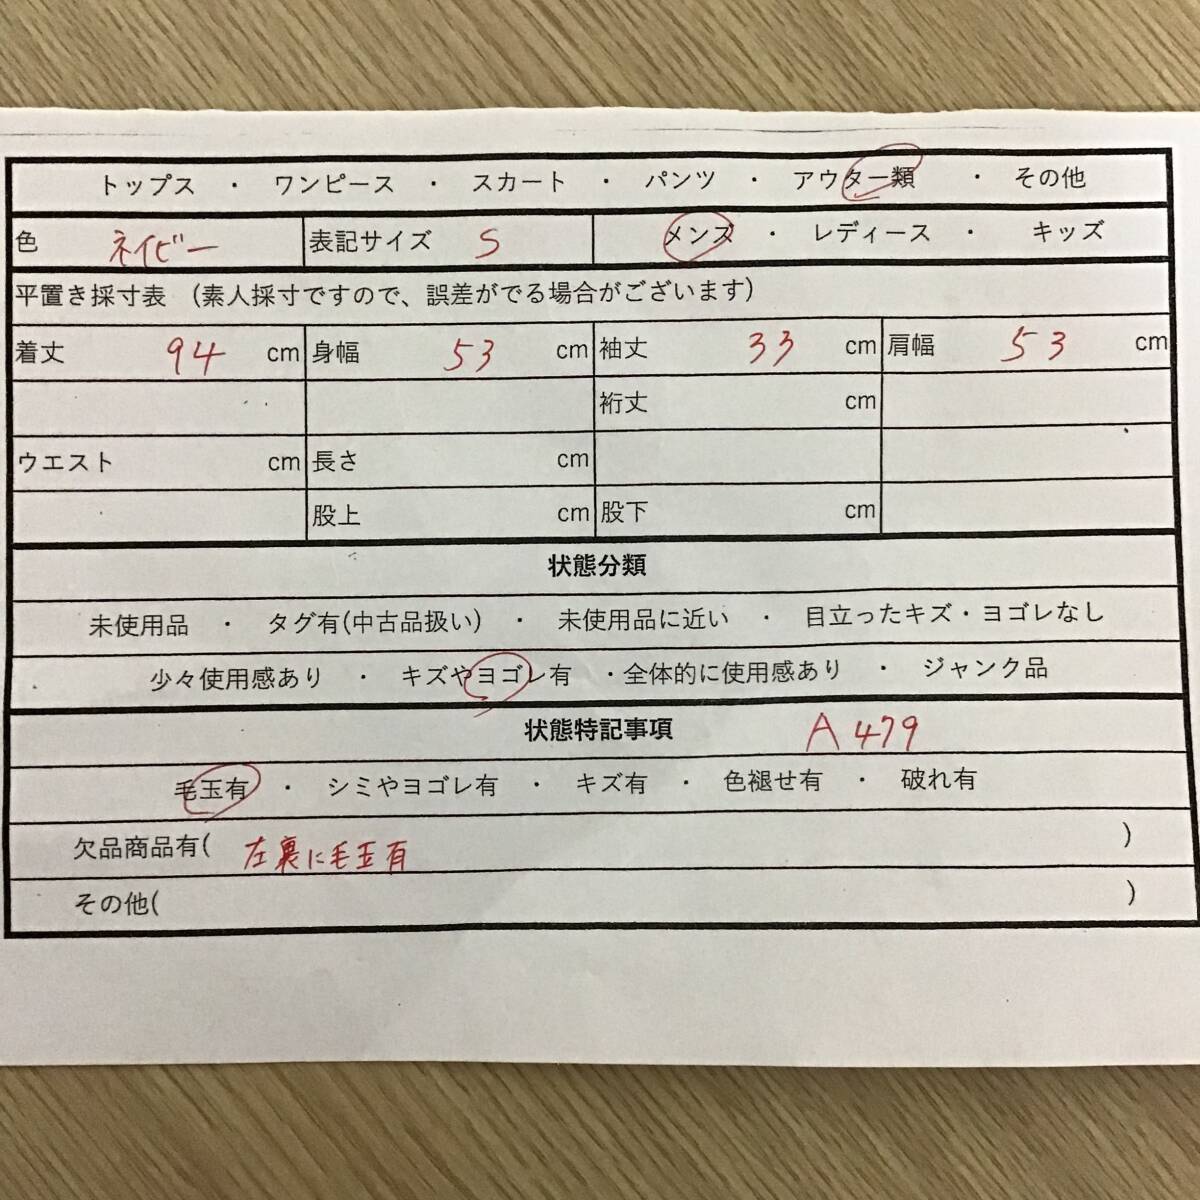 トップス ・ ワンピース ・ スカート ・ パンツ ・ アウター類 ・ その他
色 ネイビー 表記サイズ S メンズ ・ レディース ・ キッズ
平置き採寸表 (素人採寸ですので、誤差がでる場合がございます)
着丈 94 cm 身幅 53 cm 袖丈 33 cm 肩幅 53 cm
裄丈 cm
ウエスト cm 長さ cm
股上 cm 股下 cm
状態分類
未使用品 ・ タグ有(中古品扱い) ・ 未使用品に近い ・ 目立ったキズ・ヨゴレなし
少々使用感あり ・ キズやヨゴレ有 ・全体的に使用感あり ・ ジャンク品
状態特記事項 A479
毛玉有 ・ シミやヨゴレ有 ・ キズ有 ・ 色褪せ有 ・ 破れ有
欠品商品有( 左裏に毛玉有 )
その他( )